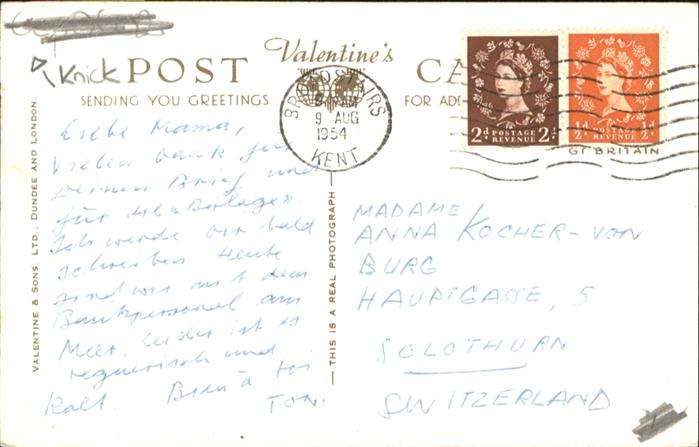 Knick
POST Valentine's CA
SENDING YOU GREETINGS
FOR AD
BROADSTAIRS
9 AUG
1954
KENT
2d POSTAGE REVENUE 2d
½d POSTAGE REVENUE ½d
GT BRITAIN
VALENTINE & SONS, LTD., DUNDEE AND LONDON.
THIS IS A REAL PHOTOGRAPH
Liebe Mama,
Vielen Dank für
Deinen Brief und
für die "Beilage".
Ich werde dir bald
schreiben Heute
sind wir mit dem
Bankpersonal am
Meer. Leider ist es
regnerisch und
kalt. Bien à toi
TONI
MADAME
ANNA KOCHER-VON
BURG
HAUPTGASSE, 5
SOLOTHURN
SWITZERLAND